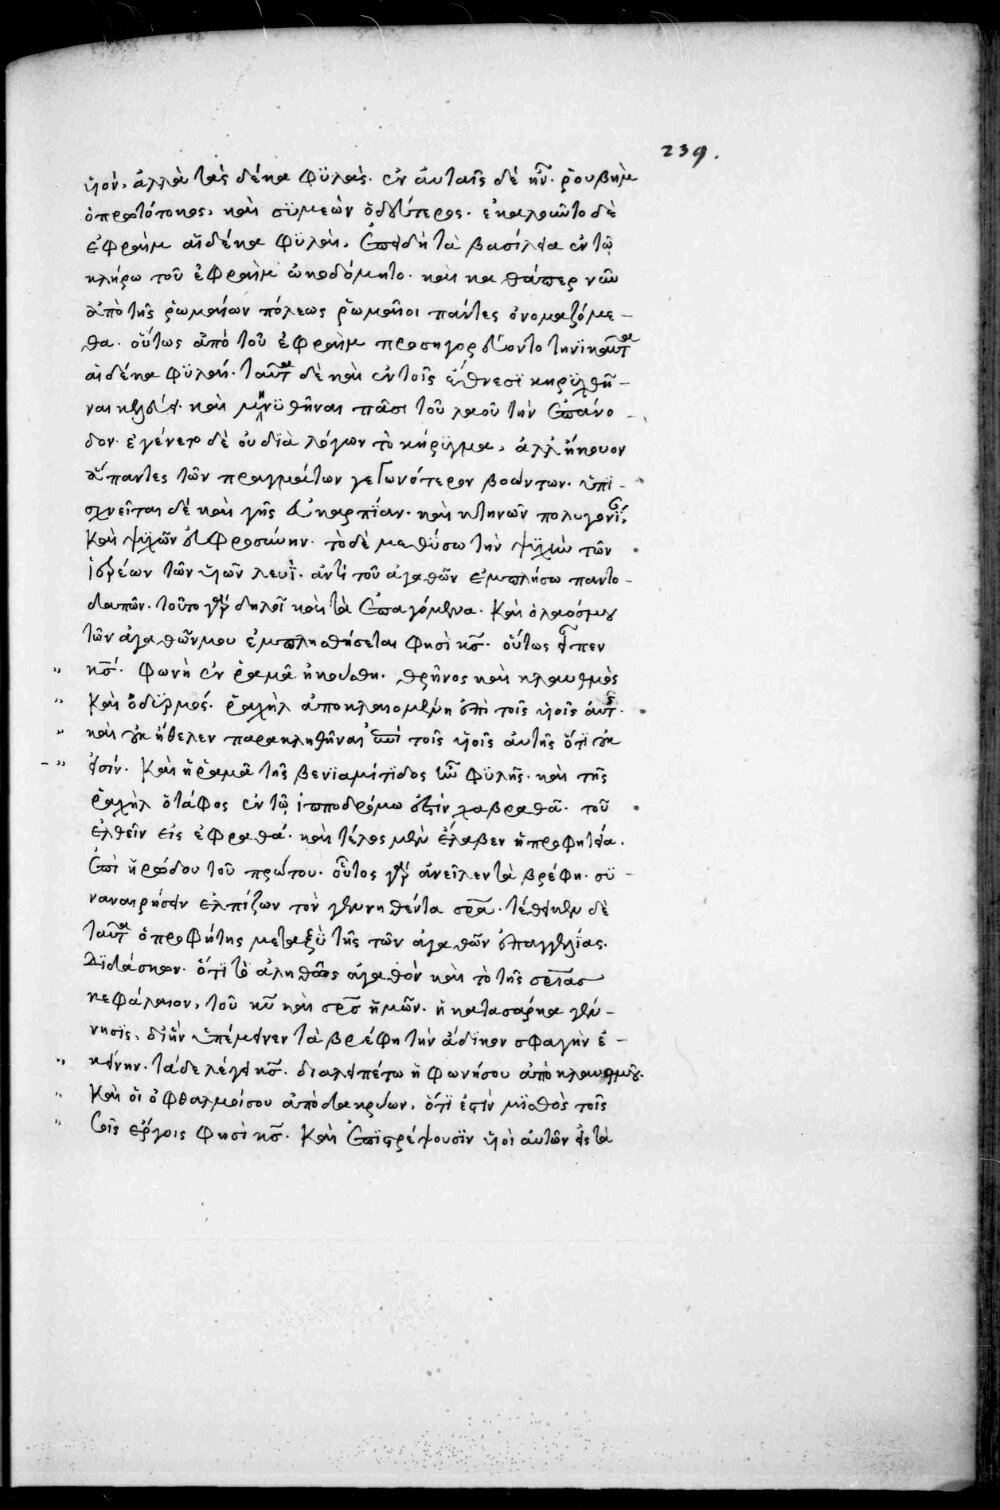 239.
ϋἱόν, ἀλλὰ τὰς δέκα φϋλάς. ἐν ἀυταῖς δὲ ἦν ῥουβὴμ
ὁ πρωτότοκος, καὶ σϋμεὼν ὁ δεύτερος. ἐκαλοῦντο δὲ
ἐφραὴμ αἱ δέκα φϋλαὶ, ἐπειδὴ τὰ βασίλεια ἐν τῶ
κλήρω τοῦ ἐφραὴμ ὠκοδόμητο. καὶ καθάπερ νῦν
ἀπὸ τῆς ῥωμαίων πόλεως ῥωμαῖοι πάντες ὀνομαζόμε-
θα. οὕτως ἀπὸ τοῦ ἐφραὴμ προσηγορεύοντο τηνϊκαῦτα
αἱ δέκα φϋλαί. ταῦτα δὲ καὶ ἐν τοῖς ἔθνεσϊ κηρϋχθῆ-
ναι κελεύει. καὶ μηνϋθῆναι πᾶσι τοῦ λαοῦ τὴν ἐπάνο
δον. ἐγένετο δὲ οὐ διὰ λόγων τὸ κήρϋγμα, ἀλλ' ἤκουον
ἅπαντες τῶν πραγμάτων γεγωνότερον βοώντων. ὑπι-
σχνεῖται δὲ καὶ γῆς εὐκαρπίαν. καὶ κτηνῶν πολυγονί,
καὶ ψϋχῶν εὐφροσύνην. τὸ δὲ μεθύσω τὴν ψϋχὴν τῶν
ἱερέων τῶν ϋἱῶν λευΐ. ἀντὶ τοῦ ἀγαθῶν ἐμπλήσω παντο-
δαπῶν. τοῦτο γὰρ δηλοῖ καὶ τὰ ἐπαγόμενα. καὶ ὁ λαόσμου
τῶν ἀγαθῶν μου ἐμπλησθήσεται φησὶ κς. οὕτως εἶπεν
κς. φωνὴ ἐν ῥαμᾶ ἠκούσθη. θρῆνος καὶ κλαυθμὸς
καὶ ὀδϋρμός. ῥαχὴλ ἀποκλαιομένη ἐπὶ τοῖς ϋἱοῖς ἀυτῆς.
καὶ οὐκ ἤθελεν παρακληθῆναι ἐπὶ τοῖς ϋἱοῖς ἀυτῆς ὅτι οὐκ
εἰσίν. καὶ ἡ ῥαμᾶ τῆς βενϊαμίτϊδος ἦν φϋλῆς. καὶ τῆς
ῥαχὴλ ὁ τάφος ἐν τῶ ἱπποδρόμω ἐστὶν χαβραθᾶ. τοῦ
ἐλθεῖν εἰς ἐφραθά. καὶ τέλος μὲν ἔλαβεν ἡ προφητεία.
ἐπὶ ἡρώδου τοῦ πρώτου. οὗτος γὰρ ἀνεῖλεν τὰ βρέφη. σϋ-
ναναιρήσειν ἐλπίζων τὸν γεννηθέντα σρα. τέθεικεν δὲ
ταῦτα ὁ προφήτης μεταξὺ τῆς τῶν ἀγαθῶν ἐπαγγελίας.
Δϊδάσκων. ὅτι τὸ ἀληθῶς ἀγαθὸν καὶ τὸ τῆς σρίας
κεφάλαιον, τοῦ κυ καὶ σρς ἡμῶν. ἡ κατασάρκα γέν-
νησις, δι' ἣν ὑπέμεινεν τὰ βρέφη τὴν ἄδϊκον σφαγὴν ἐ-
κείνην. τάδε λέγει κς. διαλειπέτω ἡ φωνήσου ἀπὸ κλαυθμοῦ.
καὶ οἱ ὀφθαλμοίσου ἀπὸ δακρύων, ὅτι ἐστὶν μϊσθὸς τοῖς
σοῖς ἔργοις φησὶ κς. καὶ ἐπιστρέψουσϊν ϋἱοὶ ἀυτῶν εἰς τὰ